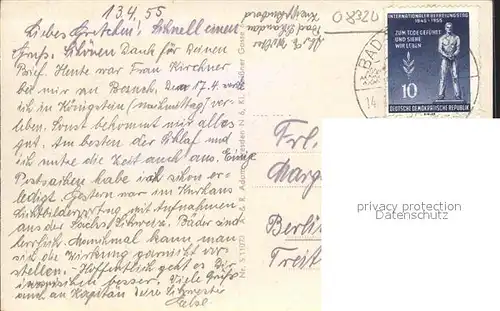 13.4.55
Liebes Gretchen! Schnell einen
Gruß. Schönen Dank für Deinen
Brief. Heute war Frau Kirchner
bei mir zu Besuch. Den 17.4. will
ich in Königstein (nachmittag) ver-
leben. Sonst bekommt mir alles
gut. Am besten der Schlaf und
ich nutze die Zeit auch aus. Einige
Postsachen habe ich schon er-
ledigt. Gestern war im Kurhaus
Lichtbildervortrag mit Aufnahmen
aus der Sächs. Schweiz. Bäder sind
herrlich. Manchmal kann man
sich die Wirkung garnicht vor-
stellen. Hoffentlich geht es Dir
inzwischen besser. Viele Grüße
auch an Kapitän Deine Schwester
Else.
08320
BAD
14
INTERNATIONALER BEFREIUNGSTAG
1945-1955
ZUM TODE GEFÜHRT
UND SIEHE
WIR LEBEN
10
DEUTSCHE DEMOKRATISCHE REPUBLIK
& R. Adam, Dresden N 6, Kl.
Frl.
Marg
Berlin
Trett
privacy protection
Datenschutz